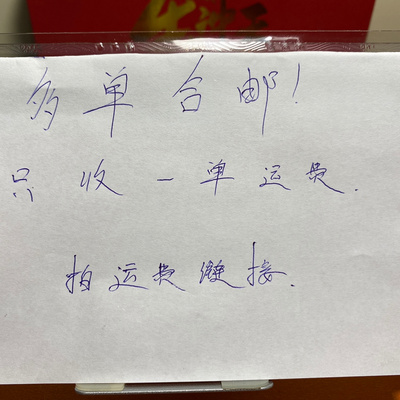 多单合邮!
只收一单运费.
拍运费链接.